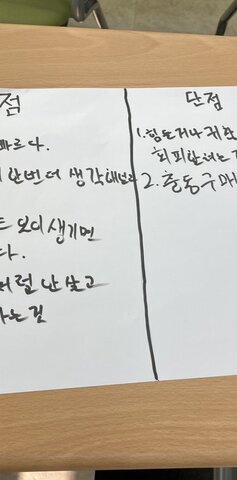 점
빠르다.
한번더 생각해보라
도 보이 생기면
다.
처럼 안 살고
하는 것
단점
1. 힘든거나 귀찮
회피한다는
2. 충동구매